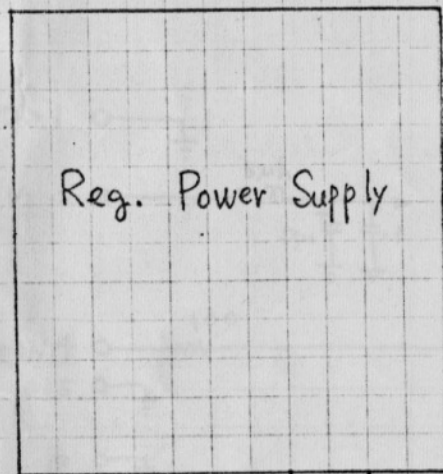 Reg. Power Supply